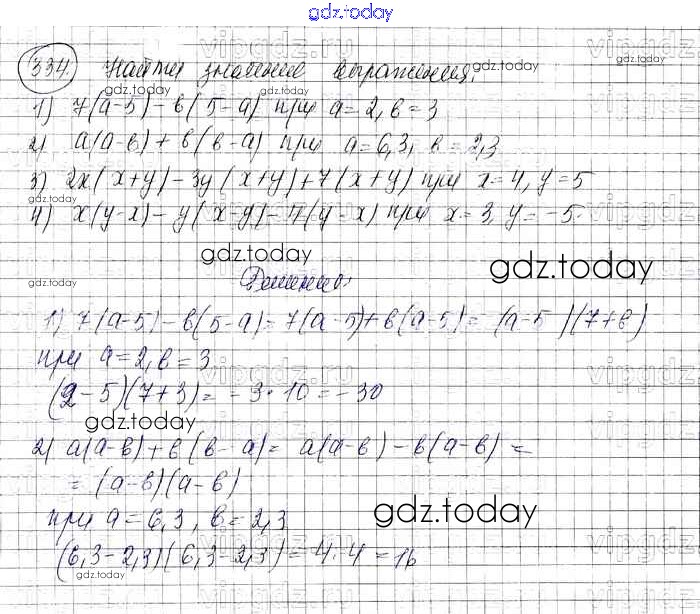 gdz.today
334. Найти значение выражения.
1) 7(a-5)-b(5-a) при a=2, b=3
2) a(a-b)+b(b-a) при a=6,3, b=2,3
3) 2x(x+y)-3y(x+y)+7(x+y) при x=4, y=5
4) x(y-x)-y(x-y)-7(y-x) при x=3, y=-5.
gdz.today gdz.today
Решение:
1) 7(a-5)-b(5-a)=7(a-5)+b(a-5)=(a-5)(7+b)
при a=2, b=3
(2-5)(7+3)=-3·10=-30
gdz.today
2) a(a-b)+b(b-a)=a(a-b)-b(a-b)=
=(a-b)(a-b)
при a=6,3, b=2,3
gdz.today
(6,3-2,3)(6,3-2,3)=4·4=16
gdz.today